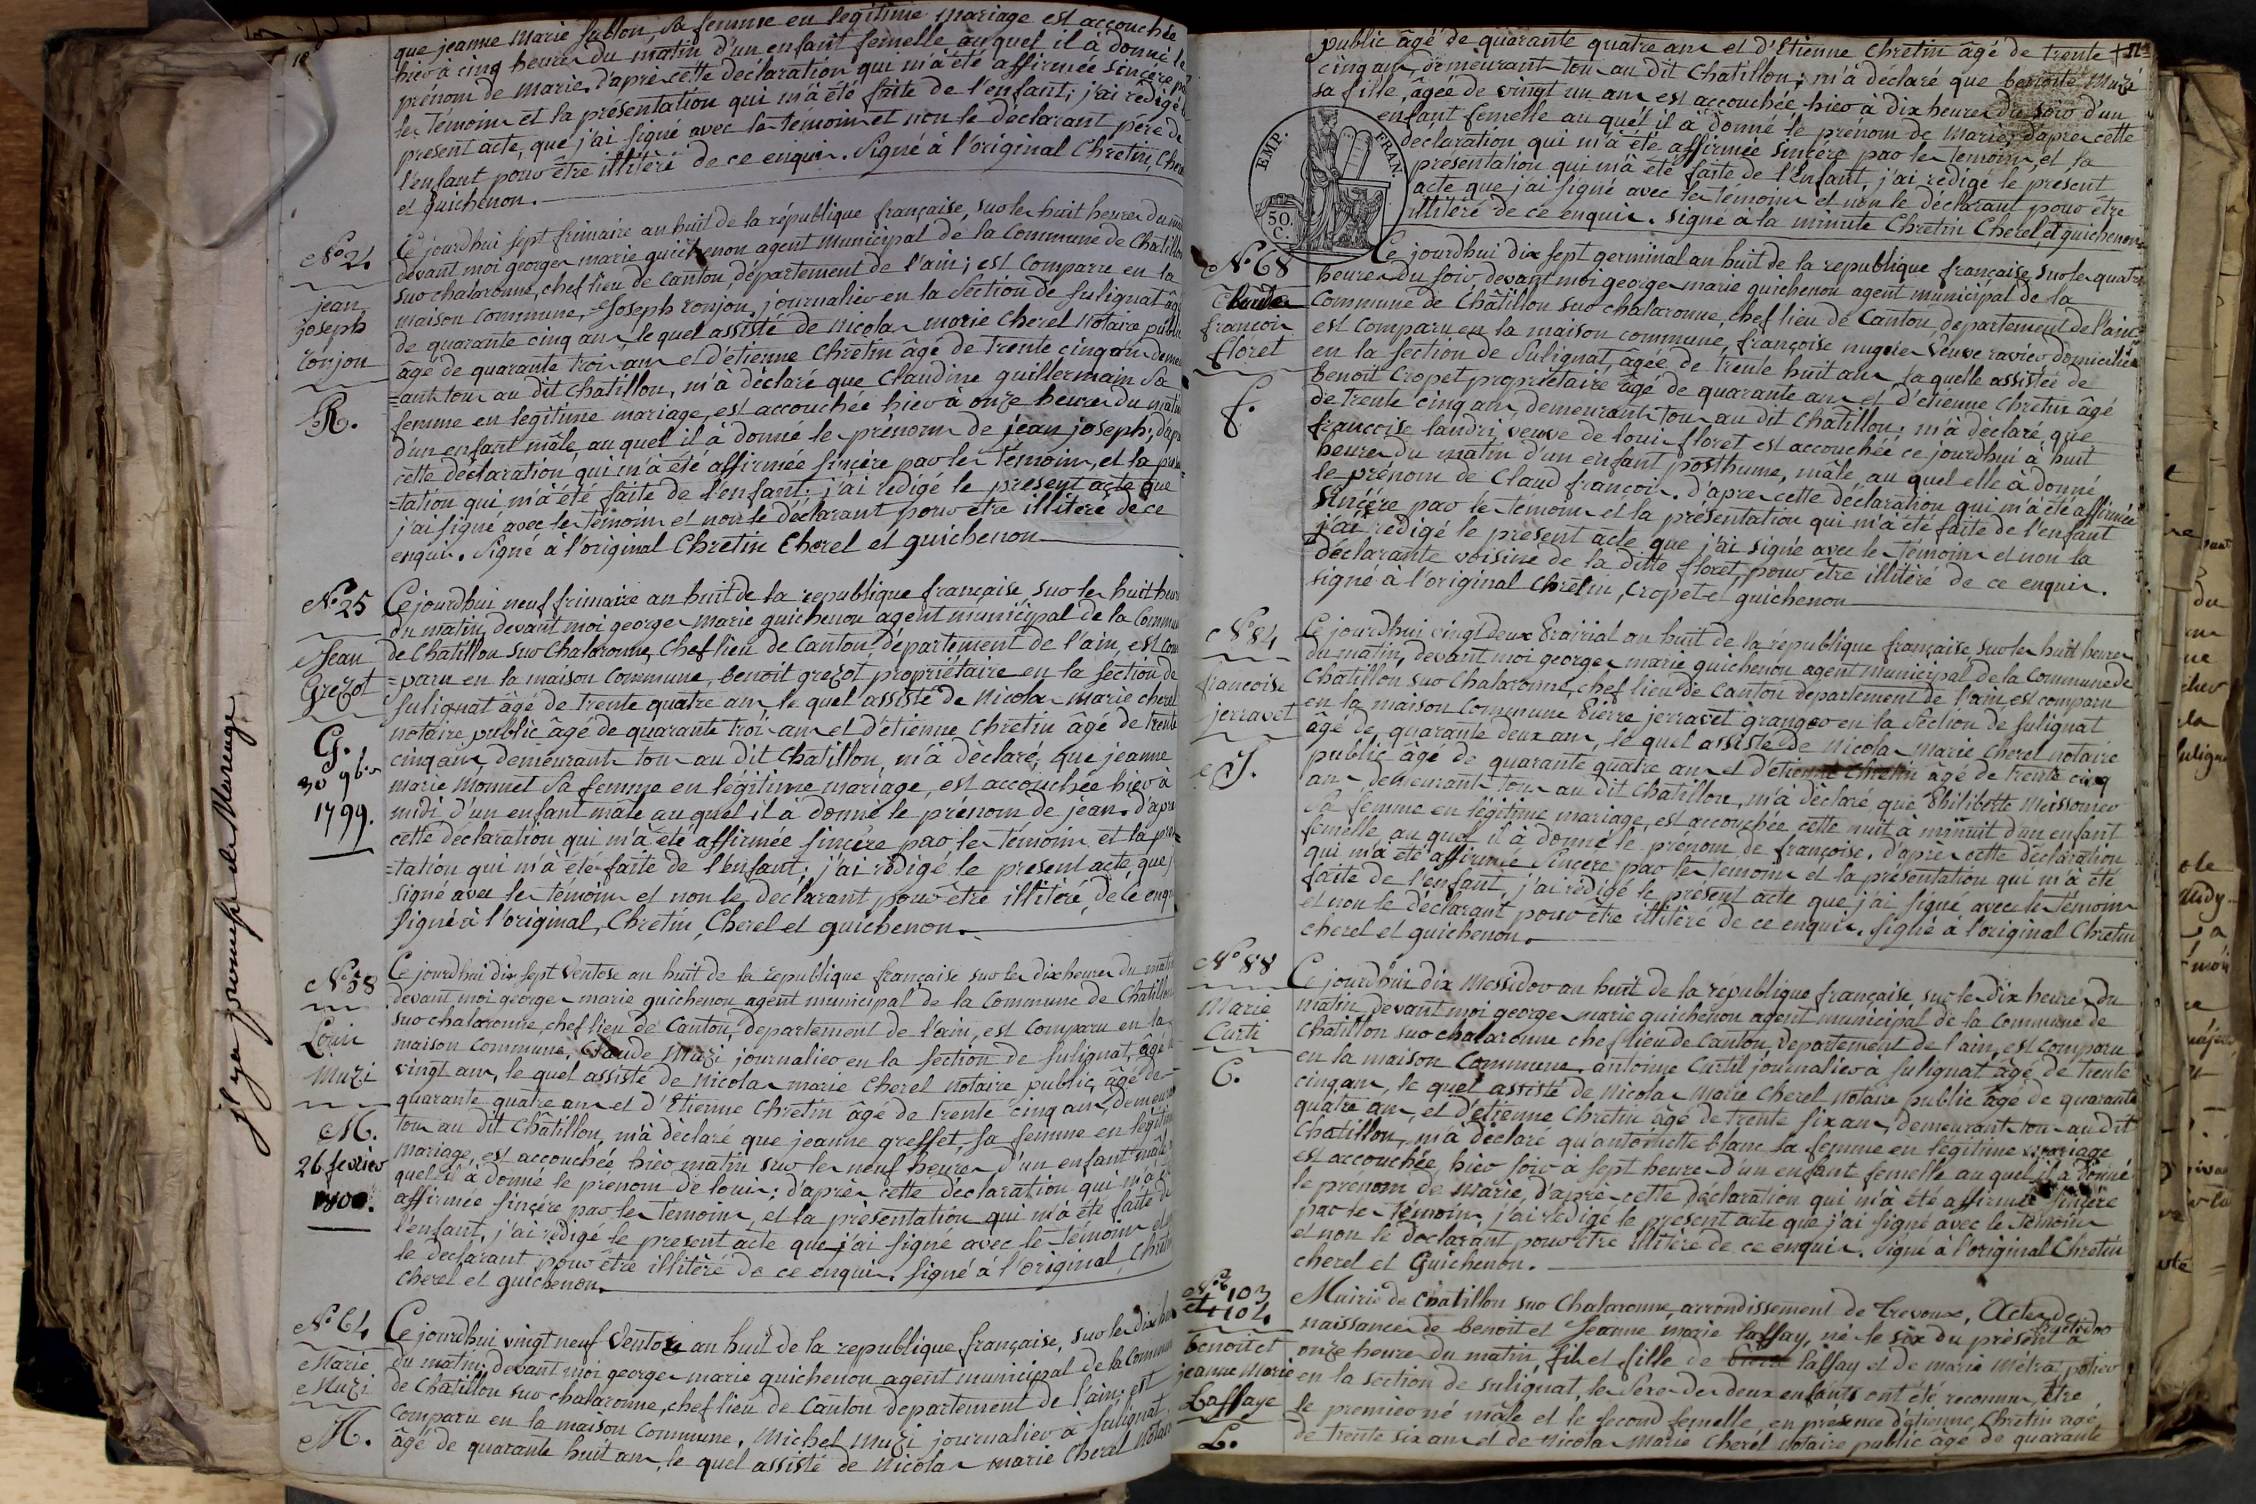 que jeanne Marie Sublon, sa femme en legitime mariage est accouchée
hier à cinq heures du matin d'un enfant femelle au quel il à donné le
prénom de marie, d'après cette déclaration qui m'à été affirmée sincère p
les témoins et la présentation qui m'à été faite de l'enfant; j'ai rédigé
present acte, que j'ai signé avec les temoins et non le déclarant pére de
l'enfant pour être illitéré de ce enquis. Signé à l'original Chretin, Cher
et guichenon.
N°24
jean
joseph
ronjon
R.
Ce jourdhui sept frimaire an huit de la république française, sur les huit heures du
devant moi georges marie guichenon agent municipal de la Commune de Chatillon
sur chalaronne, chef lieu de canton, département de l'ain; est comparu en la
maison commune, Joseph ronjon, journalier en la section de sulignat âgé
de quarante cinq ans, le quel assisté de nicolas marie cherel notaire public
âgé de quarante trois ans et d'étienne Chretin âgé de trente cinq ans demeu
=ants tous au dit chatillon, m'à déclaré que Claudine guillermain sa
femme en legitime mariage, est accouchée hier à onze heures du matin
d'un enfant mâle, au quel il à donné le prénom de jean joseph; d'apr
cette déclaration qui m'à été affirmée sincère par les témoins, et la presen
=tation qui m'à été faite de l'enfant; j'ai redigé le present acte que
j'ai signé avec les témoins et non le déclarant pour être illitéré de ce
enquis. Signé à l'original Chretin Cherel et guichenon
N°25
Jean
Grezot
G.
30 9bre
1799.
Ce jourdhui neuf frimaire an huit de la republique française, sur les huit heures
du matin, devant moi georges marie guichenon agent municipal de la Commune
de Chatillon sur Chalaronne, Chef lieu de Canton, département de l'ain, est com
=paru en la maison commune, benoit grezot propriétaire en la section de
sulignat âgé de trente quatre ans, le quel assisté de nicolas marie cherel
notaire public âgé de quarante trois ans et d'étienne Chretin âgé de trente
cinq ans, demeurants tous au dit Chatillon, m'à déclaré, que jeanne
marie monnet sa femme en légitime mariage, est accouchée hier à
midi d'un enfant mâle au quel il à donné le prénom de jean. d'apr
cette déclaration qui m'à été affirmée sincère par les témoins et la pre
=tation qui m'à été faite de l'enfant; j'ai rédigé le present acte, que j
signé avec les témoins et non le déclarant pour être illitéré, de ce enq
Signé à l'original, Chretin, Cherel et guichenon.
N°58
Louis
Muzi
M.
26 fevrier
1800.
Ce jourdhui dix sept ventose an huit de la republique française sur les dix heures du matin
devant moi georges marie guichenon agent municipal de la commune de Chatillon
sur chalaronne, chef lieu de Canton, département de l'ain, est comparu en la
maison commune, Claude Muzi journalier en la section de sulignat, âgé
vingt ans, le quel assisté de nicolas marie cherel notaire public, âgé de
quarante quatre ans et d'Etienne Chretin âgé de trente cinq ans, demeur
tous au dit Châtillon, m'à déclaré que jeanne greffet, sa femme en légitime
mariage, est accouchée, hier matin sur les neuf heures d'un enfant mâle
quel il à donné le prenom de louis; d'après cette déclaration qui m'à é
affirmée sincère par les temoins, et la présentation qui m'à été faite de
l'enfant, j'ai rédigé le present acte que j'ai signé avec les témoins et
le déclarant pour être illitéré de ce enquis. Signé à l'original, Chretin
cherel et guichenon.
N°64
Marie
Muzi
M.
Ce jourdhui vingt neuf ventose an huit de la republique française, sur les dix heu
du matin; devant moi georges marie guichenon agent municipal de la Commun
de Chatillon sur chalaronne, chef lieu de Canton departement de l'ain; est
comparu en la maison commune, Michel Muzi journalier à sulignat
âgé de quarante huit ans, le quel assisté de nicolas marie cherel notaire
public âgé de quarante quatre ans et d'Etienne Chretin âgé de trente
cinq ans, demeurants tous au dit Chatillon; m'à déclaré que benoite Muzi
sa fille, âgée de vingt un ans est accouchée hier à dix heures du soir d'un
enfant femelle au quel il à donné le prénom de Marie; d'après cette
déclaration qui m'à été affirmée sincère par les temoins, et la
présentation qui m'à été faite de l'enfant, j'ai rédigé le présent
acte que j'ai signé avec les témoins et non le déclarant pour être
illitéré de ce enquis. Signé à la minute Chretin Cherel, et guichenon
EMP. FRAN.
50.
C.
N°68
Claude
françois
floret
f.
Ce jourdhui dix sept germinal an huit de la republique française, sur les quatre
heures du soir devant moi georges marie guichenon agent municipal de la
Commune de Châtillon sur chalaronne, chef lieu de Canton, departement de l'ain
est comparu en la maison commune, françoise nugue veuve ravier domiciliée
en la section de Sulignat, agée de trente huit ans la quelle assistée de
benoit Cropet propriétaire âgé de quarante ans et d'etienne Chretin âgé
de trente cinq ans, demeurants tous au dit Chatillon; m'à déclaré, que
françoise landri, veuve de louis floret est accouchée ce jourdhui à huit
heures du matin d'un enfant posthume, mâle, au quel elle à donné
le prénom de Claud françois. d'apres cette déclaration qui m'à été affirmée
sincére par les témoins et la présentation qui m'à été faite de l'enfant
j'ai rédigé le présent acte que j'ai signé avec les témoins et non la
déclarante voisine de la ditte floret, pour être illitéré de ce enquis.
signé à l'original Chretin, Cropet et guichenon
N°84
françoise
jerravet
J.
Ce jourdhui vingt deux Prairial an huit de la république française, sur les huit heures
du matin, devant moi georges marie guichenon agent municipal de la Commune de
Chatillon sur Chalaronne, chef lieu de Canton departement de l'ain, est comparu
en la maison commune Pierre jerravet granger en la section de sulignat
âgé de quarante deux ans, le quel assisté de nicolas marie cherel notaire
public âgé de quarante quatre ans et d'etienne Chretin âgé de trente cinq
ans demeurants tous au dit Chatillon, m'à déclaré que Philiberte meissonier
sa femme en légitime mariage, est accouchée cette nuit à minuit d'un enfant
femelle au quel il à donné le prénom de françoise. d'après cette déclaration
qui m'à été affirmée sincère par les temoins et la présentation qui m'à été
faite de l'enfant, j'ai rédigé le présent acte que j'ai signé avec les témoins
et non le déclarant pour être illitéré de ce enquis. Signé à l'original Chretin
cherel et guichenon.
N°88
Marie
Curti
C.
Ce jourdhui dix Messidor an huit de la république française, sur les dix heures du
matin, devant moi georges marie guichenon agent municipal de la commune de
Chatillon sur chalaronne chef lieu de Canton, departement de l'ain, est comparu
en la maison commune antoine Curtil journalier à sulignat âgé de trente
cinq ans, le quel assisté de Nicolas Marie cherel notaire public âgé de quarante
quatre ans, et d'étienne Chretin âgé de trente six ans, demeurants tous au dit
Chatillon, m'à déclaré qu'antoinette blanc sa femme en légitime mariage
est accouchée, hier soir à sept heures d'un enfant femelle au quel il à donné
le prenom de Marie, d'après cette déclaration qui m'à été affirmée sincère
par les temoins, j'ai rédigé le present acte que j'ai signé avec les témoins
et non le déclarant pour être illitéré de ce enquis. Signé à l'original Chretin
cherel et Guichenon.
N° 103
et 104
benoit et
jeanne Marie
Laffaye
L.
Mairie de Chatillon sur Chalaronne arrondissement de trevoux, Actes de
naissance de benoit et Jeanne marie laffay, né le six du présent à
onze heures du matin, fils et fille de laffay et de marie Métra,
en la section de sulignat, le sexe des deux enfants ont été reconnus, être
le premier né mâle et le second femelle, en présence d'étienne Chretin agé
de trente six ans et de nicolas Marie Cherel notaire public âgé de quarante